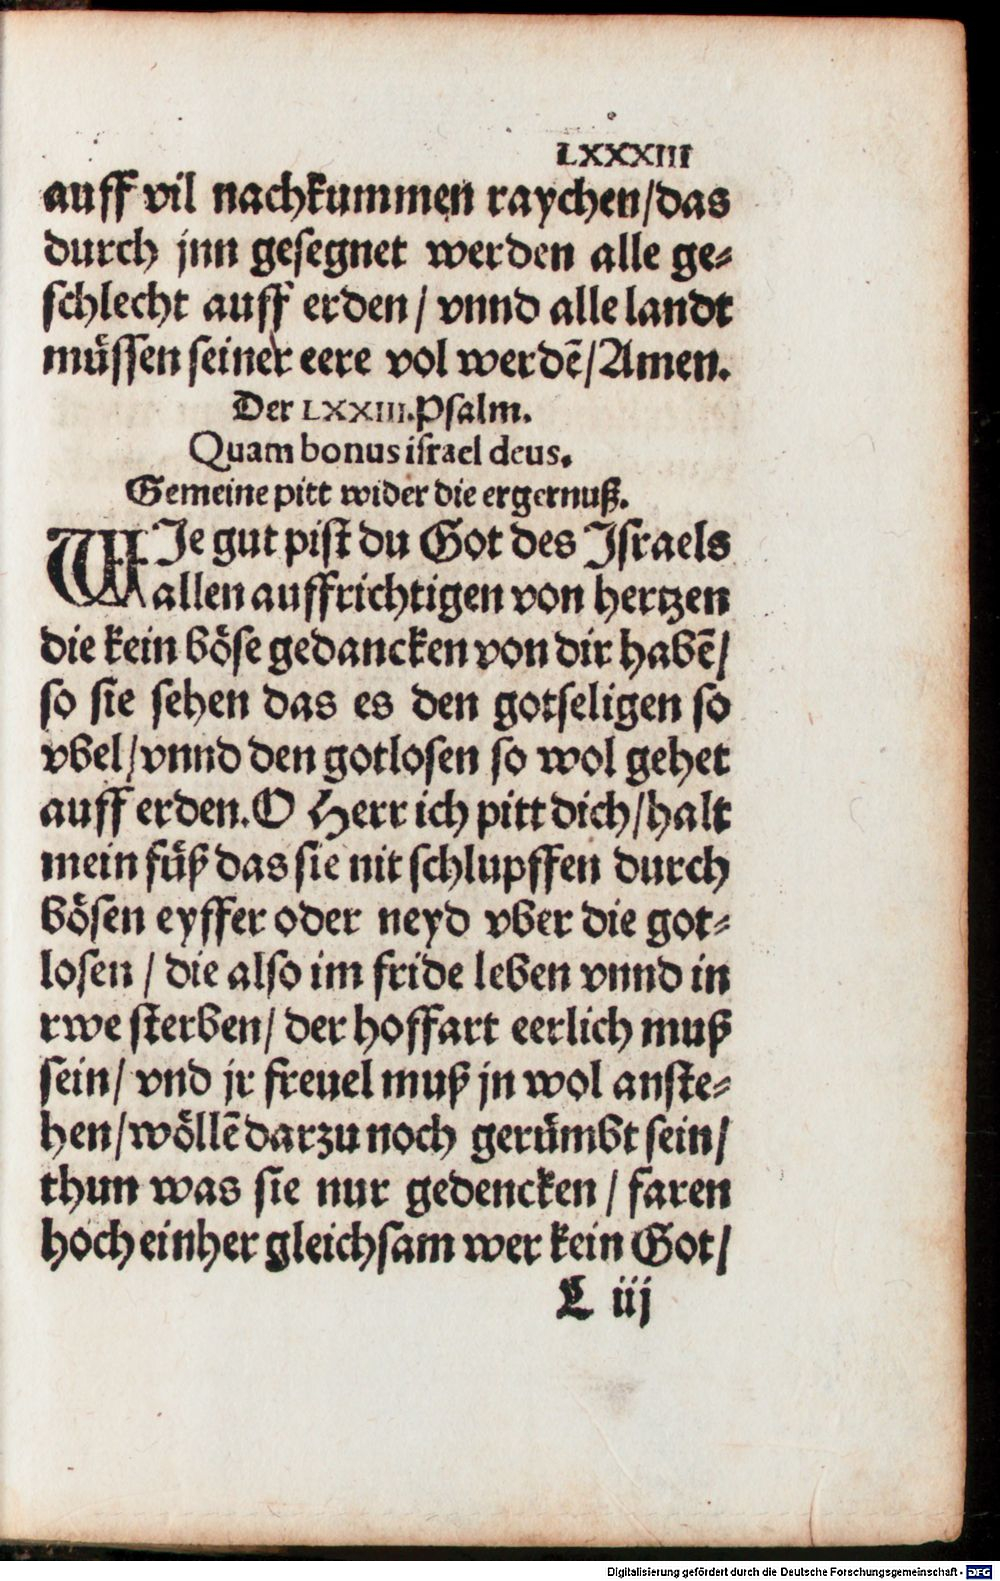 LXXXIII
auff vil nachkummen raychen/das
durch jnn gesegnet werden alle ge⸗
schlecht auff erden/ vnnd alle landt
müssen seiner eere vol werdẽ/Amen.
Der LXXIII.Psalm.
Quam bonus israel deus.
Gemeine pitt wider die ergernuß.
WJe gut pist du Got des Jsraels
allen auffrichtigen von hertzen
die kein böse gedancken von dir habẽ/
so sie sehen das es den gotseligen so
vbel/vnnd den gotlosen so wol gehet
auff erden.O Herr ich pitt dich/halt
mein füß das sie nit schlupffen durch
bösen eyffer oder neyd vber die got⸗
losen / die also im fride leben vnnd in
rwe sterben/ der hoffart eerlich muß
sein/ vnd jr freuel muß jn wol anste⸗
hen/wöllẽ darzu noch gerümbt sein/
thun was sie nur gedencken / faren
hoch einher gleichsam wer kein Got/
L iij
Digitalisierung gefördert durch die Deutsche Forschungsgemeinschaft - DFG